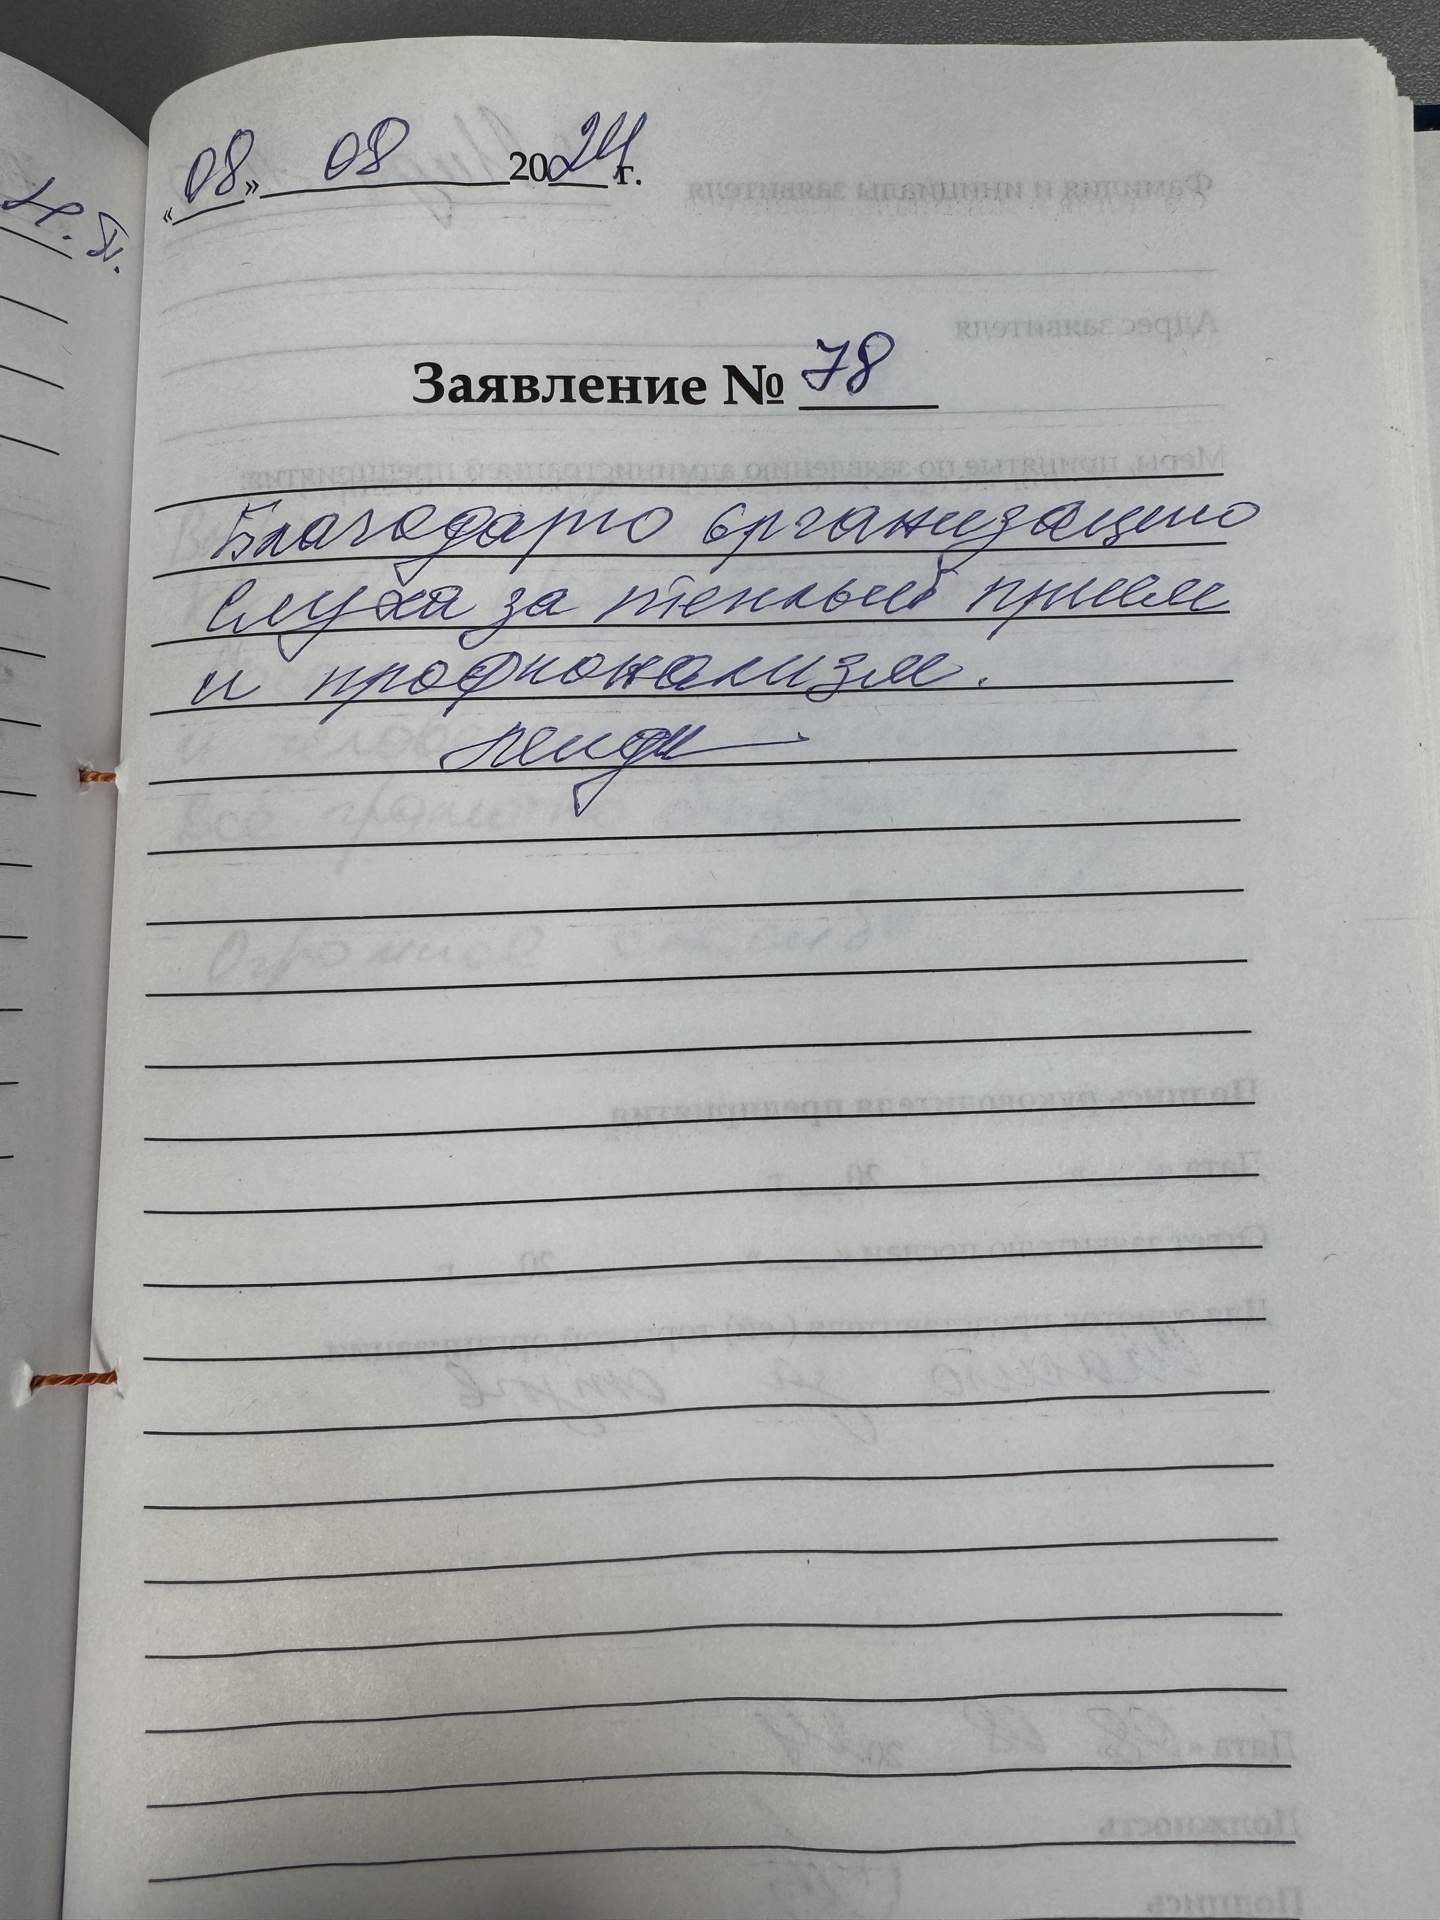 «08» 08 2024 г.
Заявление № 78
Благодарю организацию
слуха за теплый прием
и профионализм.